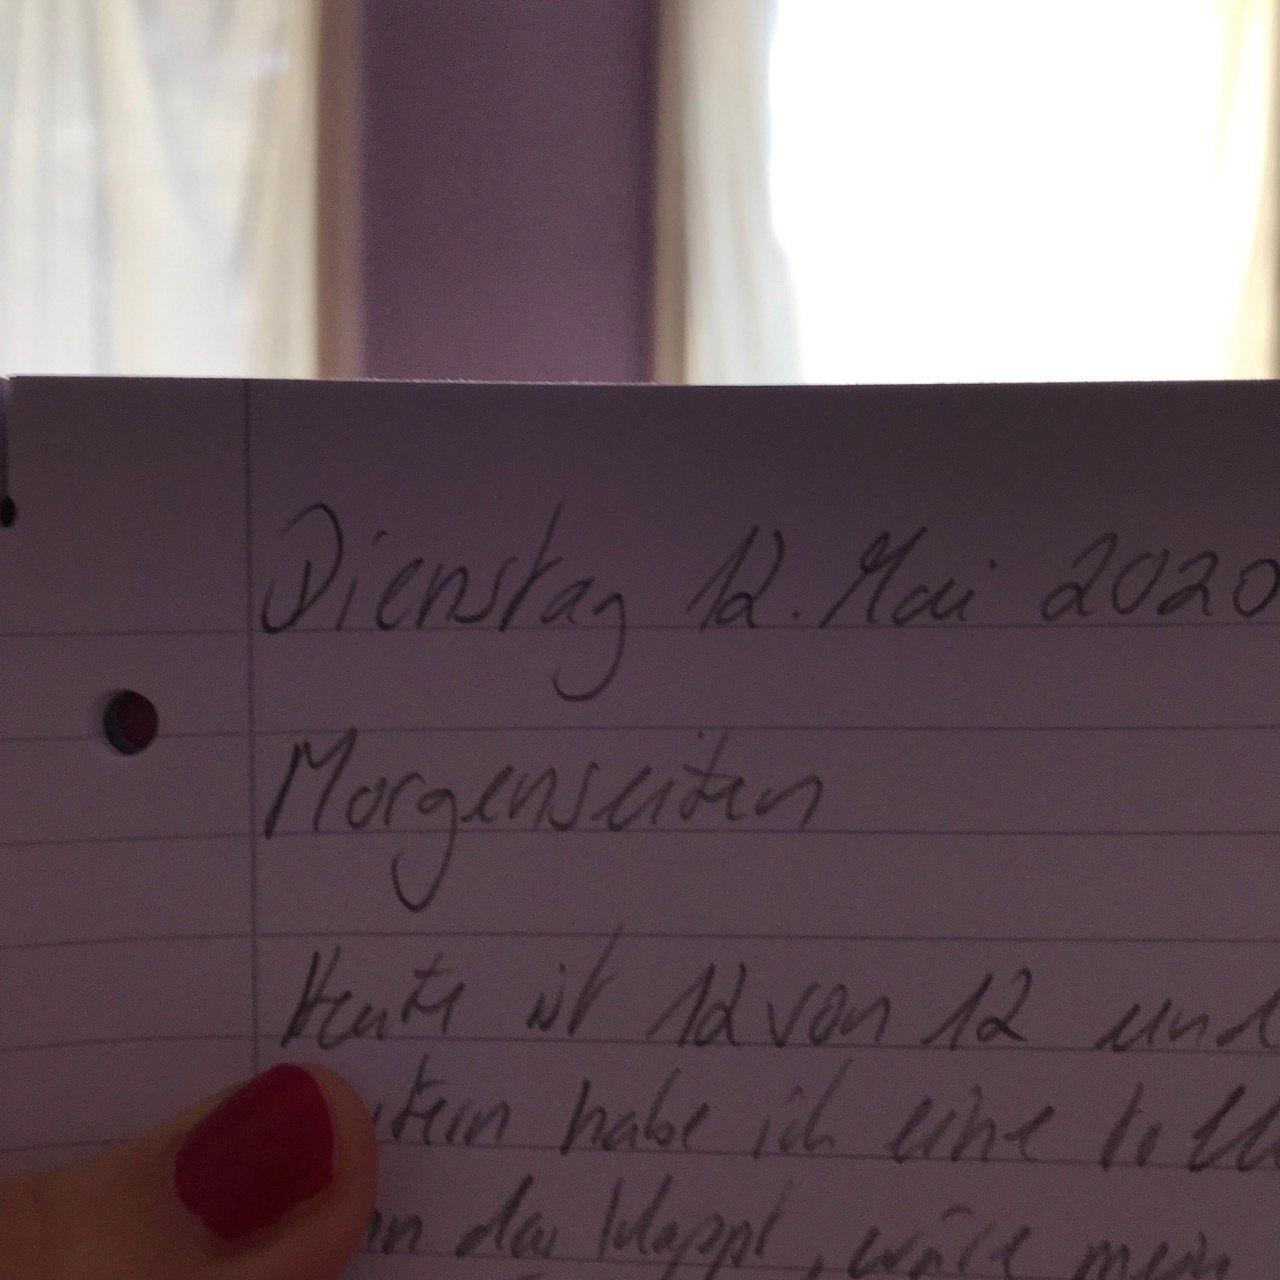 Dienstag 12. Mai 2020
Morgenseiten
Heute ist 12 von 12 und
habe ich eine
das klappt, wäre mein